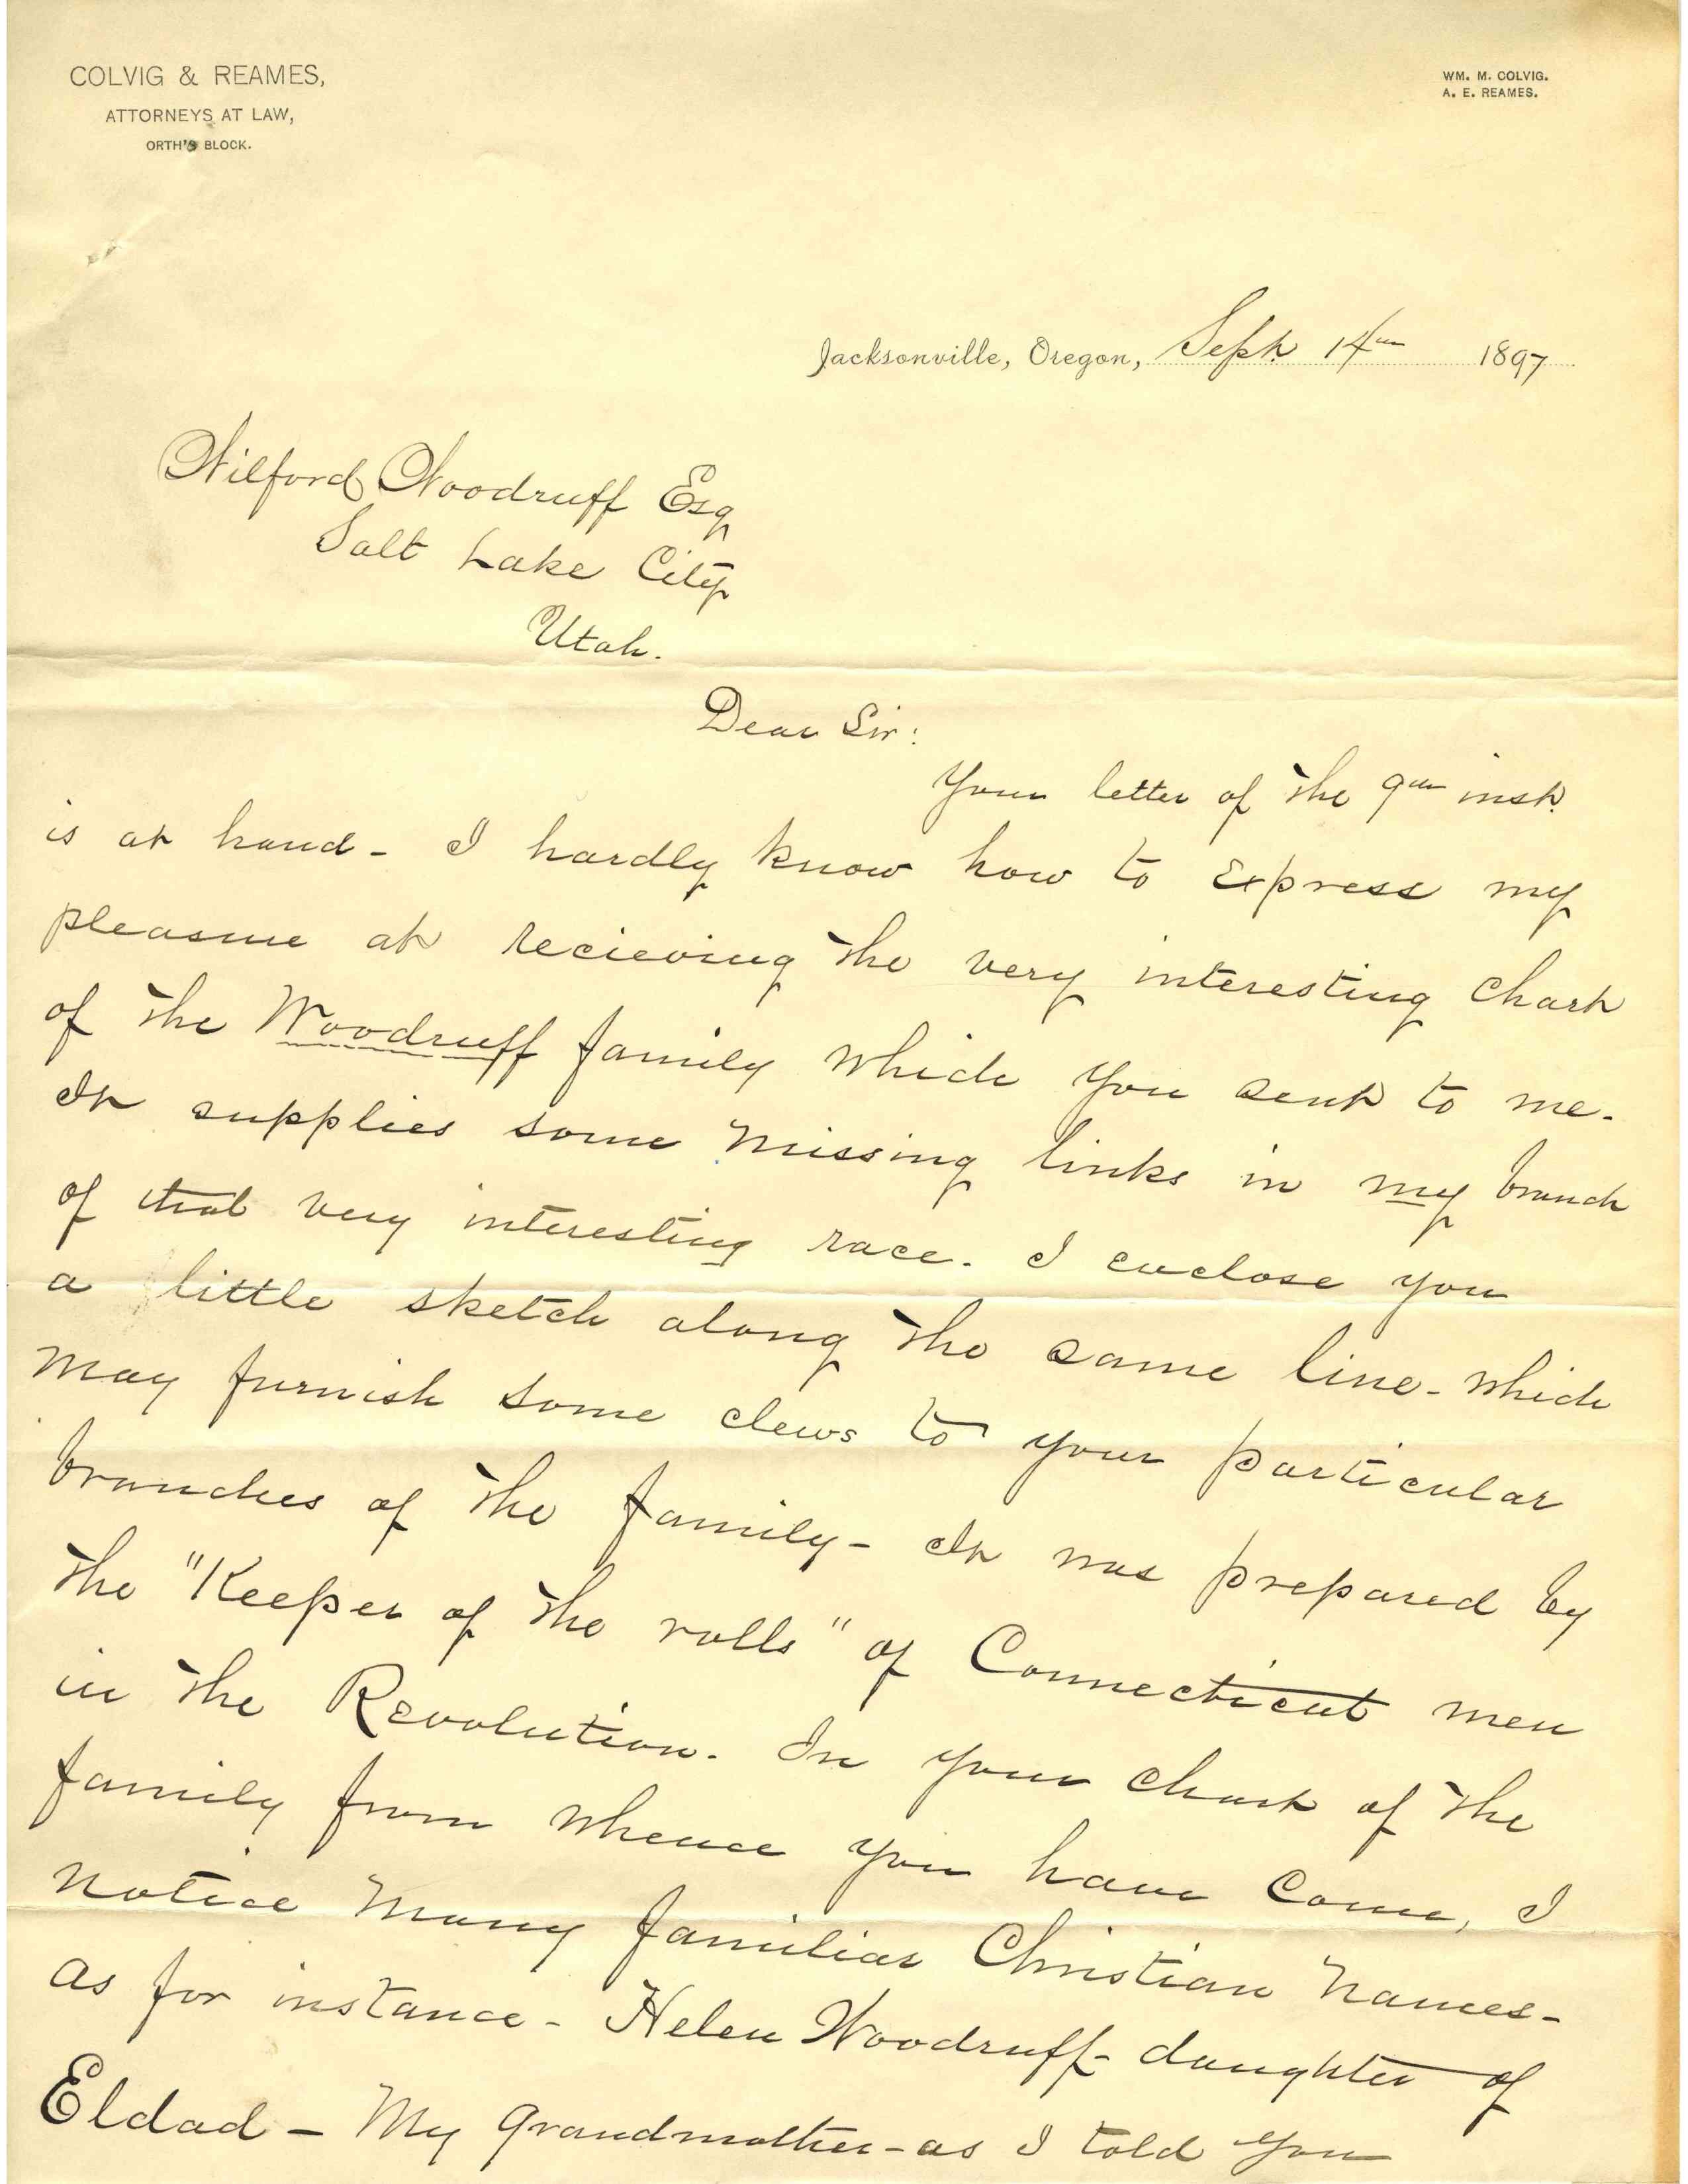 COLVIG & REAMES,
ATTORNEYS AT LAW,
ORTH'S BLOCK.
WM. M. COLVIG.
A. E. REAMES.
Jacksonville, Oregon, Sept. 14th 1897
Wilford Woodruff Esq
Salt Lake City
Utah.
Dear Sir:
Your letter of the 9th inst.
is at hand - I hardly know how to express my
pleasure at recieving the very interesting chart
of the Woodruff family which you sent to me.
It supplies some missing links in my branch
of that very interesting race. I enclose you
a little sketch along the same line - which
may furnish some clews to your particular
branches of the family - It was prepared by
the "Keeper of the rolls" of Connecticut men
in the Revolution. In your chart of the
family from whence you have come, I
notice many familiar Christian names -
as for instance - Helen Woodruff - daughter of
Eldad - My grandmother - as I told you